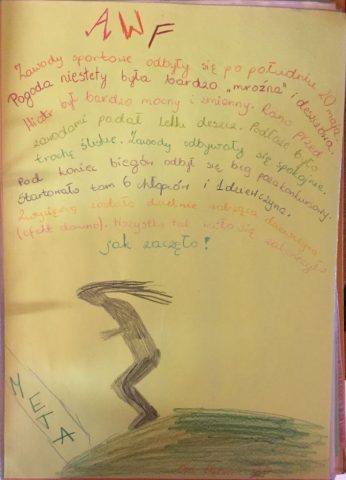 AWF
Zawody sportowe odbyły się po południu 20 maja.
Pogoda niestety była bardzo „mroźna" i deszczowa.
Wiatr był bardzo mocny i zmienny. Rano przed
zawodami padał lekki deszcz. Podłoże było
trochę śliskie. Zawody odbywały się spokojnie.
Pod koniec biegów odbył się bieg pozakonkursowy.
Startowało tam 6 chłopców i 1 dziewczyna.
Zwycięzcą została dzielnie radząca dziewczyna
(efekt downa). Wszystko tak miło się zakończyło
jak zaczęło!
META